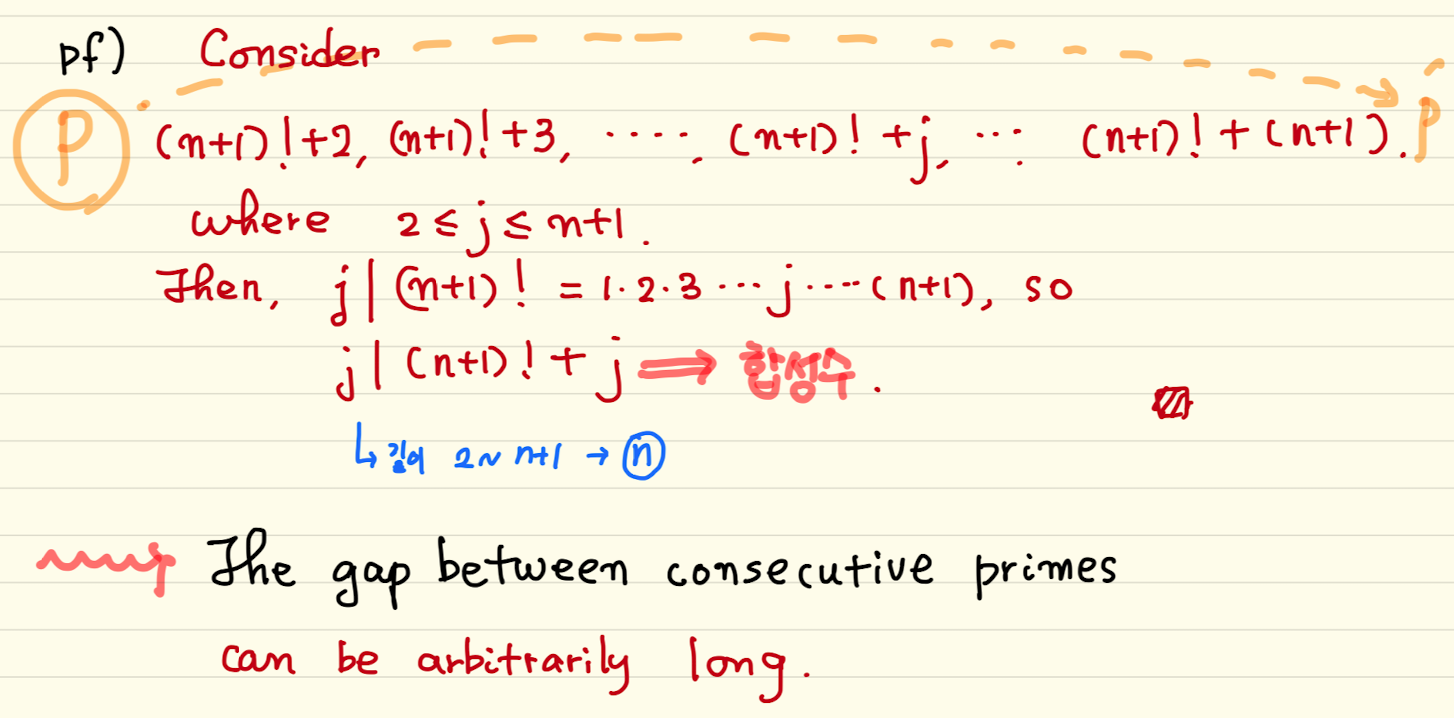 pf) Consider
P (n+1)!+2, (n+1)!+3, ····, (n+1)! + j, ··· (n+1)! + (n+1). P
where 2 ≤ j ≤ n+1.
Then, j | (n+1)! = 1·2·3···j····(n+1), so
j | (n+1)! + j ⟹ 합성수.
↳ 길이 2~n+1 → n
The gap between consecutive primes
can be arbitrarily long.